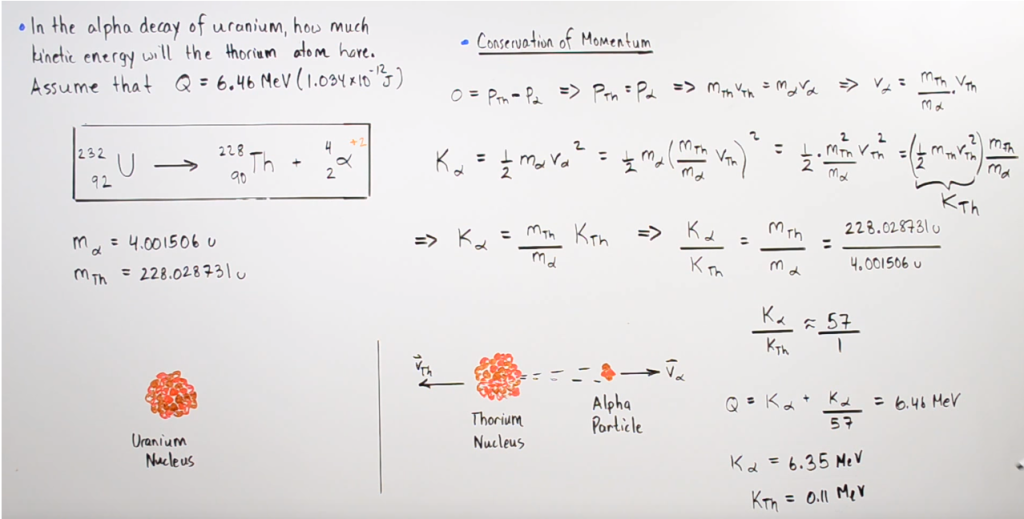 • In the alpha decay of uranium, how much
kinetic energy will the thorium atom have.
Assume that Q = 6.46 MeV (1.034×10⁻¹² J)
²³²₉₂U → ²²⁸₉₀Th + ⁴₂α⁺²
m_α = 4.001506 u
m_Th = 228.028731 u
Uranium
Nucleus
• Conservation of Momentum
0 = P_Th - P_α => P_Th = P_α => m_Th v_Th = m_α v_α => v_α = m_Th/m_α · v_Th
K_α = 1/2 m_α v_α² = 1/2 m_α (m_Th/m_α v_Th)² = 1/2 · m_Th²/m_α v_Th² = (1/2 m_Th v_Th²) m_Th/m_α
K_Th
=> K_α = m_Th/m_α K_Th => K_α/K_Th = m_Th/m_α = 228.028731 u/4.001506 u
K_α/K_Th ≈ 57/1
v⃗_Th
v⃗_α
Thorium
Nucleus
Alpha
Particle
Q = K_α + K_α/57 = 6.46 MeV
K_α = 6.35 MeV
K_Th = 0.11 MeV